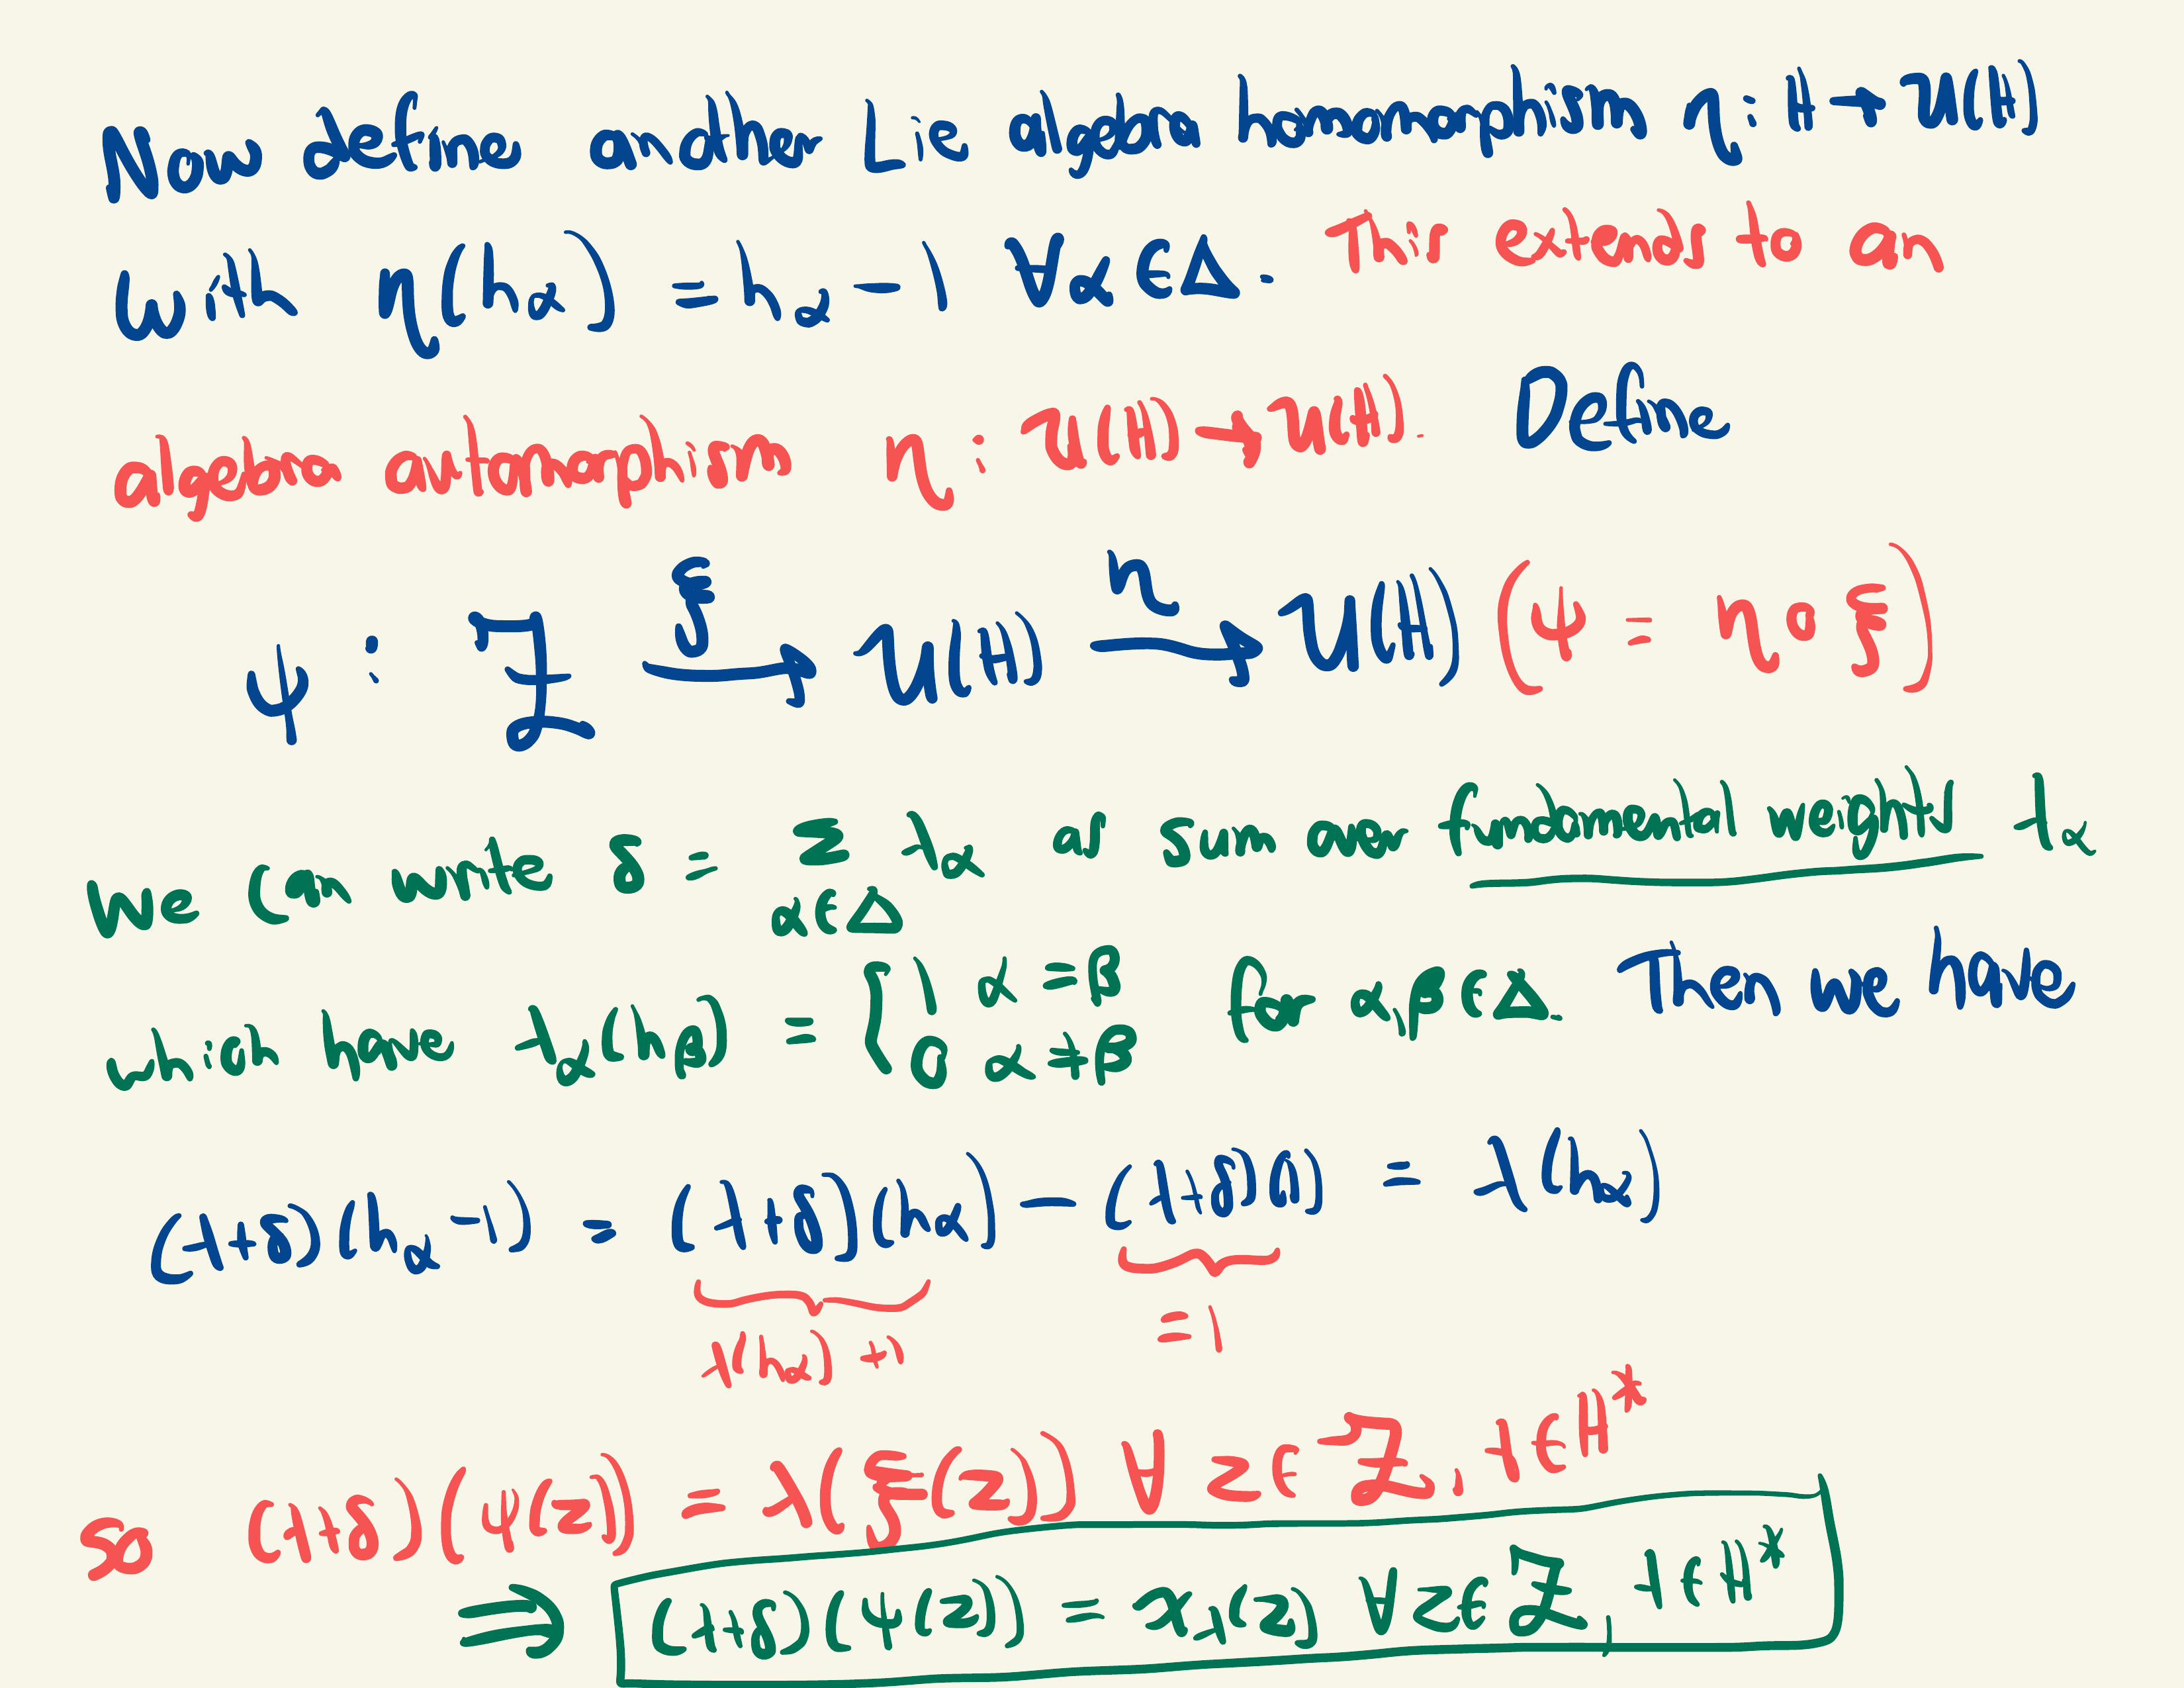 Now define another Lie algebra homomorphism η : H → U(H)
with η(h_α) = h_α − 1 ∀α ∈ Δ. This extends to an
algebra automorphism η : U(H) → U(H). Define
ψ : Z →^ξ U(H) →^η U(H) (ψ = η ∘ ξ)
We can write δ = Σ_{α∈Δ} λ_α as sum over fundamental weights λ_α
which have λ_α(h_β) = { 1 α = β
0 α ≠ β for α, β ∈ Δ. Then we have
(λ+δ)(h_α − 1) = (λ+δ)(h_α) − (λ+δ)(1) = λ(h_α)
λ(h_α) + 1
= 1
so (λ+δ)(ψ(z)) = λ(ξ(z)) ∀ z ∈ Z, λ ∈ H*
⇒ (λ+δ)(ψ(z)) = χ_λ(z) ∀ z ∈ Z, λ ∈ H*